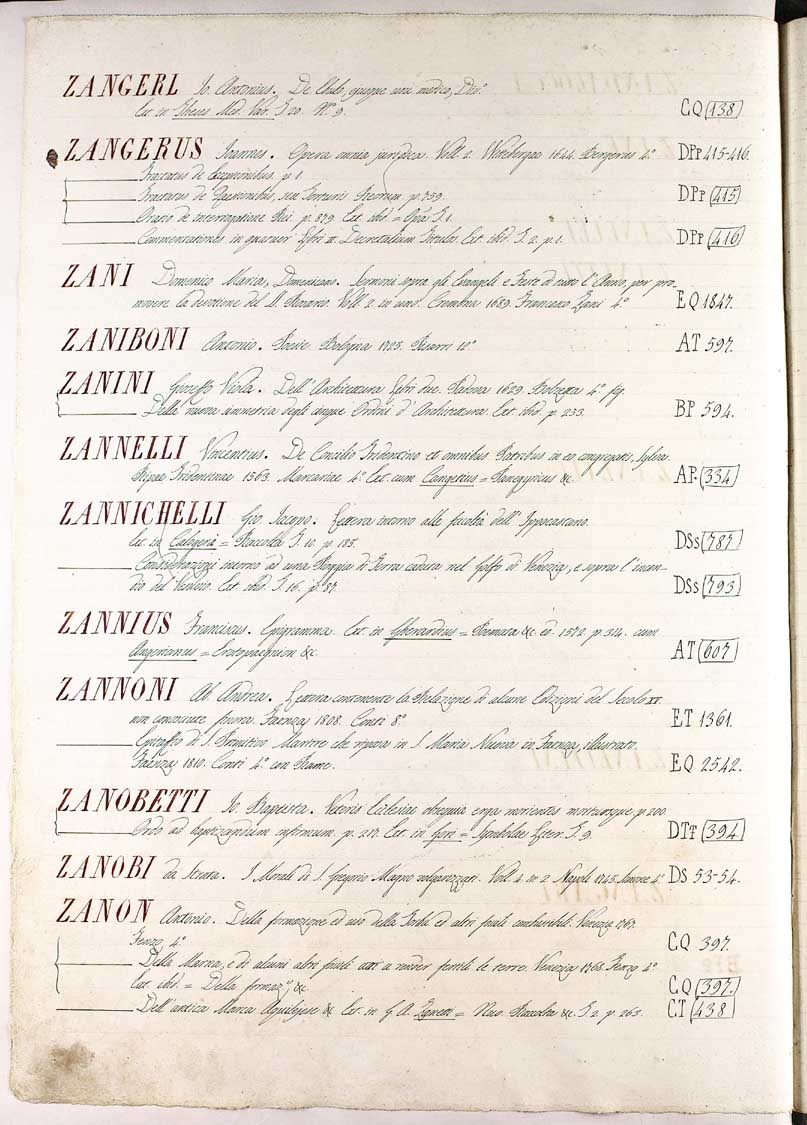 ZANGERL Io. Antonius. De Chilo, ejusque usu medico, Diss.
Ext. in Theses Med. Var. T. 20. N.º 9. CQ 138
ZANGERUS Ioannes. Opera omnia juridica. Voll. 2. Wirtebergae 1644. Bergerus 4.º DPp 415-416.
Tractatus de Exceptionibus. p. 1.
Tractatus de Quaestionibus, seu Torturis Reorum. p. 759. DPp 415
Oratio de interrogatione Rei. p. 879. Ext. ibid. = Opa T. 1.
Commentationes in quatuor Libri II. Decretalium Titulos. Ext. ibid. T. 2. p. 1. DPp 416
ZANI Domenico Maria, Domenicano. Sermoni sopra gli Evangeli e Feste di tutto l'Anno, per pro-
movere la devozione del SS. Rosario. Voll. 2. in uno. Cremona 1689. Francesco Zani 4.º EQ 1847.
ZANIBONI Antonio. Poesie. Bologna 1725. Pisarri 12.º AT 597.
ZANINI Gioseffo Viola. Dell'Architettura Libri due. Padova 1629. Bolzetta 4.º fig.
Della nuova simmetria degli cinque Ordini d'Architettura. Ext. ibid. p. 233. BP 594.
ZANNELLI Vincentius. De Concilio Tridentino et omnibus Patribus in eo congregatis, Sylva.
Ripae Tridentinae 1563. Marcariae 4.º Ext. cum Cangetius = Panegyricus &c. AP. 334
ZANNICHELLI Gio. Iacopo. Lettera intorno alle facoltà dell'Ippocastano.
Ext. in Calogerà = Raccolta T. 10. p. 185. DSs 787
Considerazioni intorno ad una Pioggia di Terra caduta nel Golfo di Venezia, e sopra l'incen-
dio del Vesuvio. Ext. ibid. T. 16. p. 87. DSs 793
ZANNIUS Franciscus. Epigramma. Ext. in Gherardius = Poemata &c. ed. 1572. p. 314. cum
Angerianus = Erotopaegnion &c. AT 607
ZANNONI Ab. Andrea. Lettera contenente la Relazione di alcune Edizioni del Secolo XV.
non conosciute finora. Faenza 1808. Conti 8.º ET 1361.
Epitaffio di S. Primitivo Martire che riposa in S. Maria Nuova in Faenza, illustrato.
Faenza 1810. Conti 4.º con Rame. EQ 2542.
ZANOBETTI Io. Baptista. Veteris Ecclesiae obsequia erga morientes mortuosque p. 200.
Ordo ad baptizandum infirmum. p. 217. Ext. in Gori = Symbolae Liter. T. 9. DTt 394
ZANOBI da Strata. I Morali di S. Gregorio Magno volgarizzati. Voll. 4. in 2. Napoli 1745. Simone 4.º DS 53-54.
ZANON Antonio. Della formazione ed uso della Torba ed altri fossili combustibili. Venezia 1767.
Fenzo 4.º CQ 397.
Della Marna, e di alcuni altri fossili atti a render fertili le terre. Venezia 1768. Fenzo 4.º
Ext. ibid. = Della formaz.e &c. C.Q 397.
Dell'antica Marca Aquilejese &c. Ext. in G. A. Zanetti = Nuo. Raccolta &c. T. 2. p. 263. C.T 438